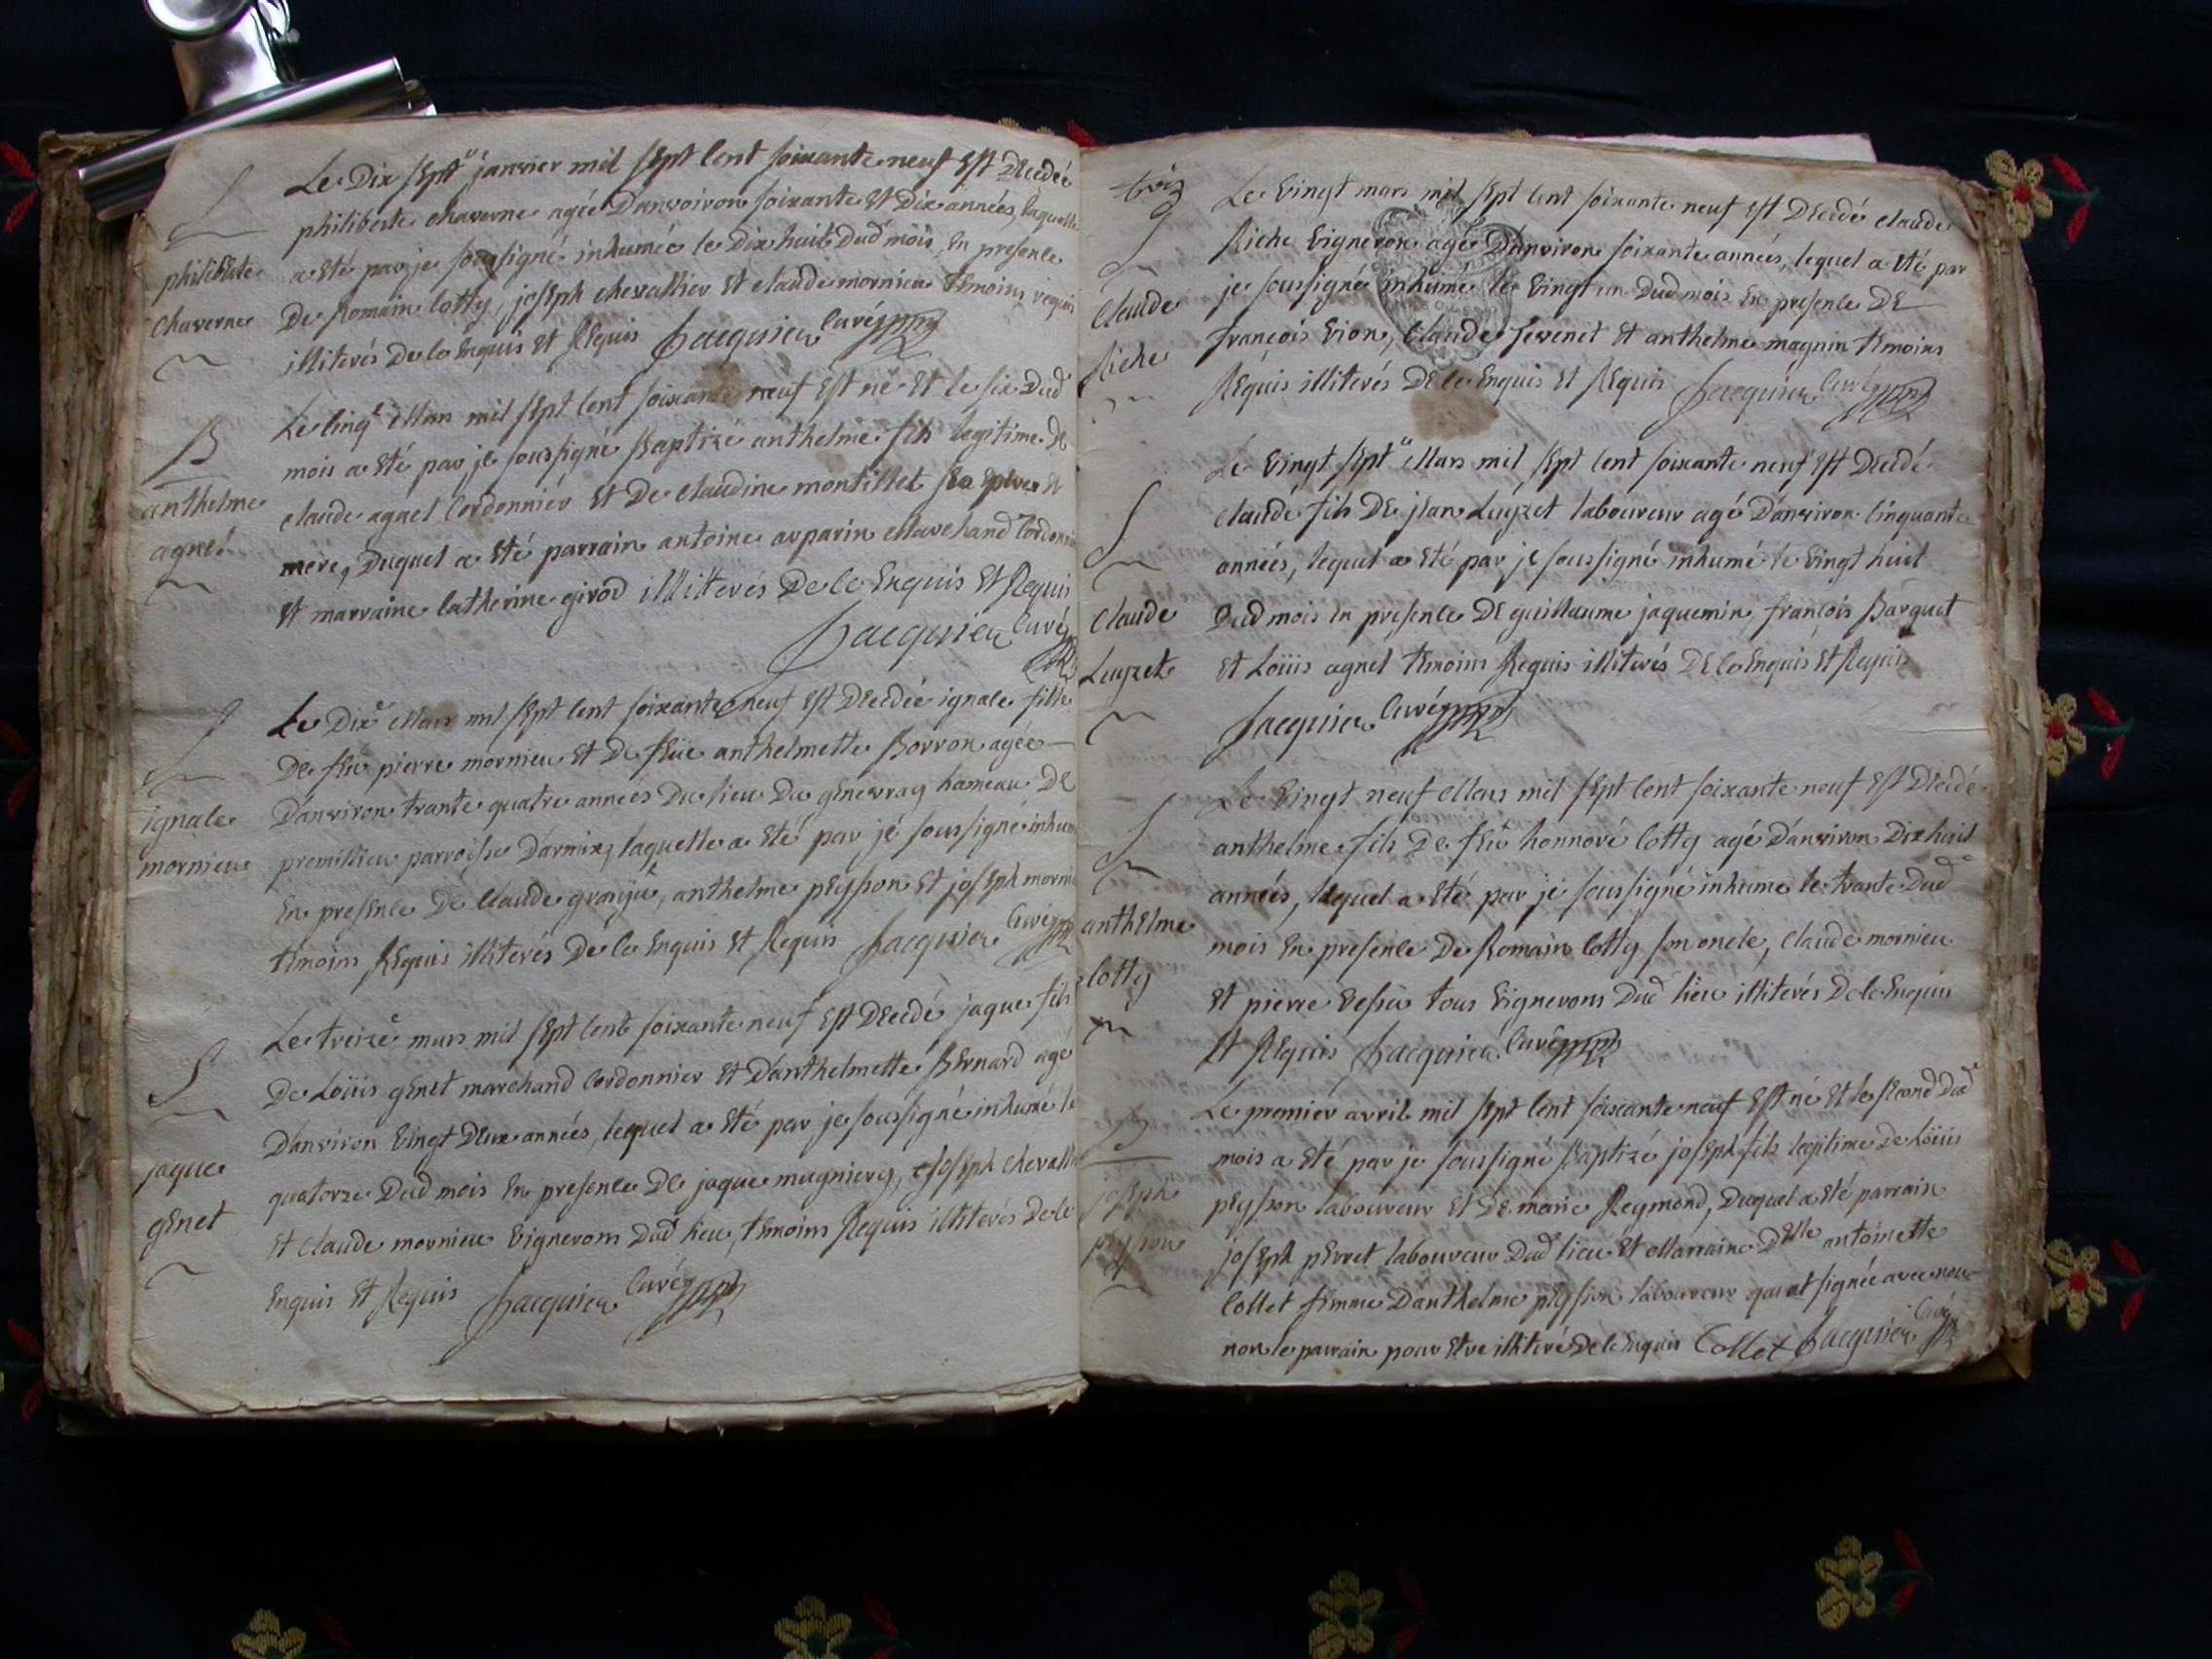 S
philiberte
chaverne
Le Dix sept janvier mil sept cent soixante neuf est Decedée
philiberte chaverne agée D'anviron soixante et Dix années, laquelle
a eté par je soussigné inhumée le Dix huit Dud mois, en presence
De Romain cotty, joseph chevallier et claude mornieu temoins requis
illiterés De ce enquis et Requis Jacquier curé
B
anthelme
agnel
Le cinq Mars mil sept cent soixante neuf est né et le six Dud
mois a eté par je soussigné Baptizé anthelme fils legitime De
claude agnel cordonnier et De claudine montillet
mere, Duquel a eté parrain antoine arparin Marchand Cordonnier
et marraine catherine girod illiterés De ce enquis et Requis
Jacquier curé
S
ignace
mornieu
Le Dix Mars mil sept cent soixante neuf est Decedée ignace fille
De feu pierre mornieu et De feüe anthelmette Borron agée
D'anviron trante quatre années Du lieu Du genevray hameau De
premillieu parroisse D'armix, laquelle a eté par je soussigné inhumé
en presence De claude granju, anthelme peysson et joseph mornieu
temoins Requis illiterés De ce enquis et Requis Jacquier curé
S
jaque
genet
Le treize mars mil sept cent soixante neuf est Decedé jaque fils
De Loüis genet marchand cordonnier et D'anthelmette Bernard agé
D'anviron vingt Deux années, lequel a eté par je soussigné inhumé le
quatorze Dud mois en presence De jaque mugniery, joseph chevallier
et claude mornieu vignerons Dud lieu, temoins Requis illiterés De ce
enquis et Requis Jacquier curé
trois
S
claude
Riche
Le vingt mars mil sept cent soixante neuf est Decedé claude
Riche vigneron agé D'anviron soixante années, lequel a eté par
je soussigné inhumé le vingt un Dud mois en presence De
françois vion, claude sevenet et anthelme magnin temoins
Requis illiterés De ce enquis et Requis Jacquier curé
S
claude
Luyzet
Le vingt sept Mars mil sept cent soixante neuf est Decedé
claude fils De jean Luyzet laboureur agé D'anviron cinquante
années, lequel a eté par je soussigné inhumé le vingt huit
Dud mois en presence De guillaume jaquemin, françois Barquet
et Loüis agnel temoins Requis illiterés De ce enquis et Requis
Jacquier curé
S
anthelme
cotty
Le vingt neuf Mars mil sept cent soixante neuf est Decedé
anthelme fils De feu honnoré cotty agé D'anviron Dix huit
années, lequel a eté par je soussigné inhumé le trante Dud
mois en presence De Romain cotty son oncle, claude mornieu
et pierre vessu tous vignerons Dud lieu illiterés De ce enquis
et Requis Jacquier curé
B
joseph
peysson
Le premier avril mil sept cent soixante neuf est né et le second Dud
mois a eté par je soussigné Baptizé joseph fils legitime De Loüis
peysson laboureur et De marie Reymond, Duquel a eté parrain
joseph perret laboureur Dud lieu et Marraine Delle antoinette
collet femme D'anthelme peysson laboureur qui at signée avec nou
non le parrain pour etre illiteré De ce enquis Collet Jacquier curé